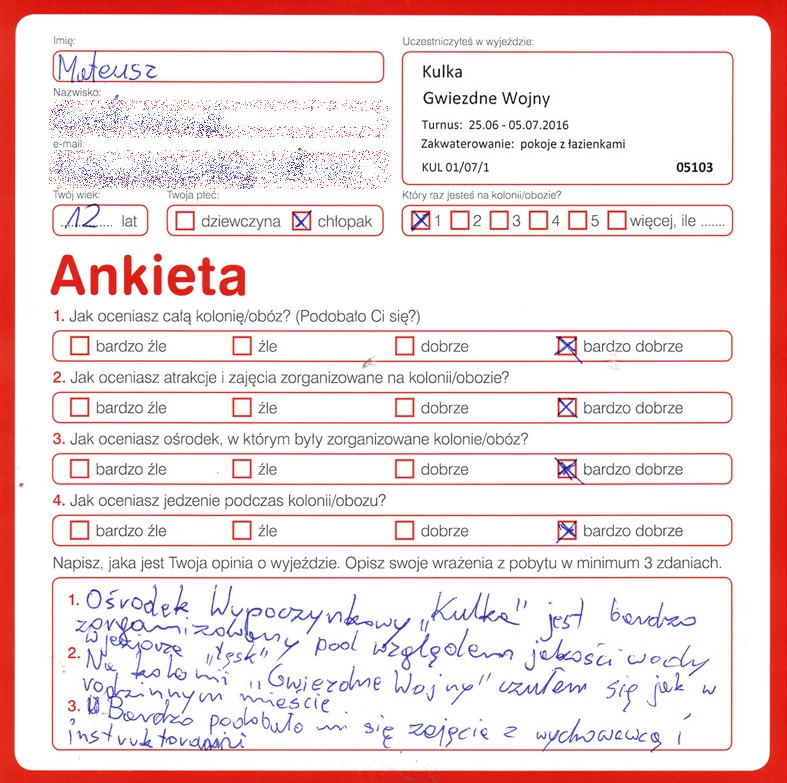 Imię:
Mateusz
Nazwisko:
e-mail:
Twój wiek:
12 lat
Twoja płeć:
dziewczyna chłopak
Uczestniczyłeś w wyjeździe:
Kulka
Gwiezdne Wojny
Turnus: 25.06 - 05.07.2016
Zakwaterowanie: pokoje z łazienkami
KUL 01/07/1 05103
Który raz jesteś na kolonii/obozie?
1 2 3 4 5 więcej, ile .......
Ankieta
1. Jak oceniasz całą kolonię/obóz? (Podobało Ci się?)
bardzo źle źle dobrze bardzo dobrze
2. Jak oceniasz atrakcje i zajęcia zorganizowane na kolonii/obozie?
bardzo źle źle dobrze bardzo dobrze
3. Jak oceniasz ośrodek, w którym były zorganizowane kolonie/obóz?
bardzo źle źle dobrze bardzo dobrze
4. Jak oceniasz jedzenie podczas kolonii/obozu?
bardzo źle źle dobrze bardzo dobrze
Napisz, jaka jest Twoja opinia o wyjeździe. Opisz swoje wrażenia z pobytu w minimum 3 zdaniach.
1. Ośrodek Wypoczynkowy „Kulka" jest bardzo
zorganizowany pod względem jakości wody
w jeziorze „Łęsk"
2. Na kolonii „Gwiezdne Wojny" czułem się jak w
rodzinnym mieście
3. Bardzo podobało mi się zajęcia z wychowawcą i
instruktorami